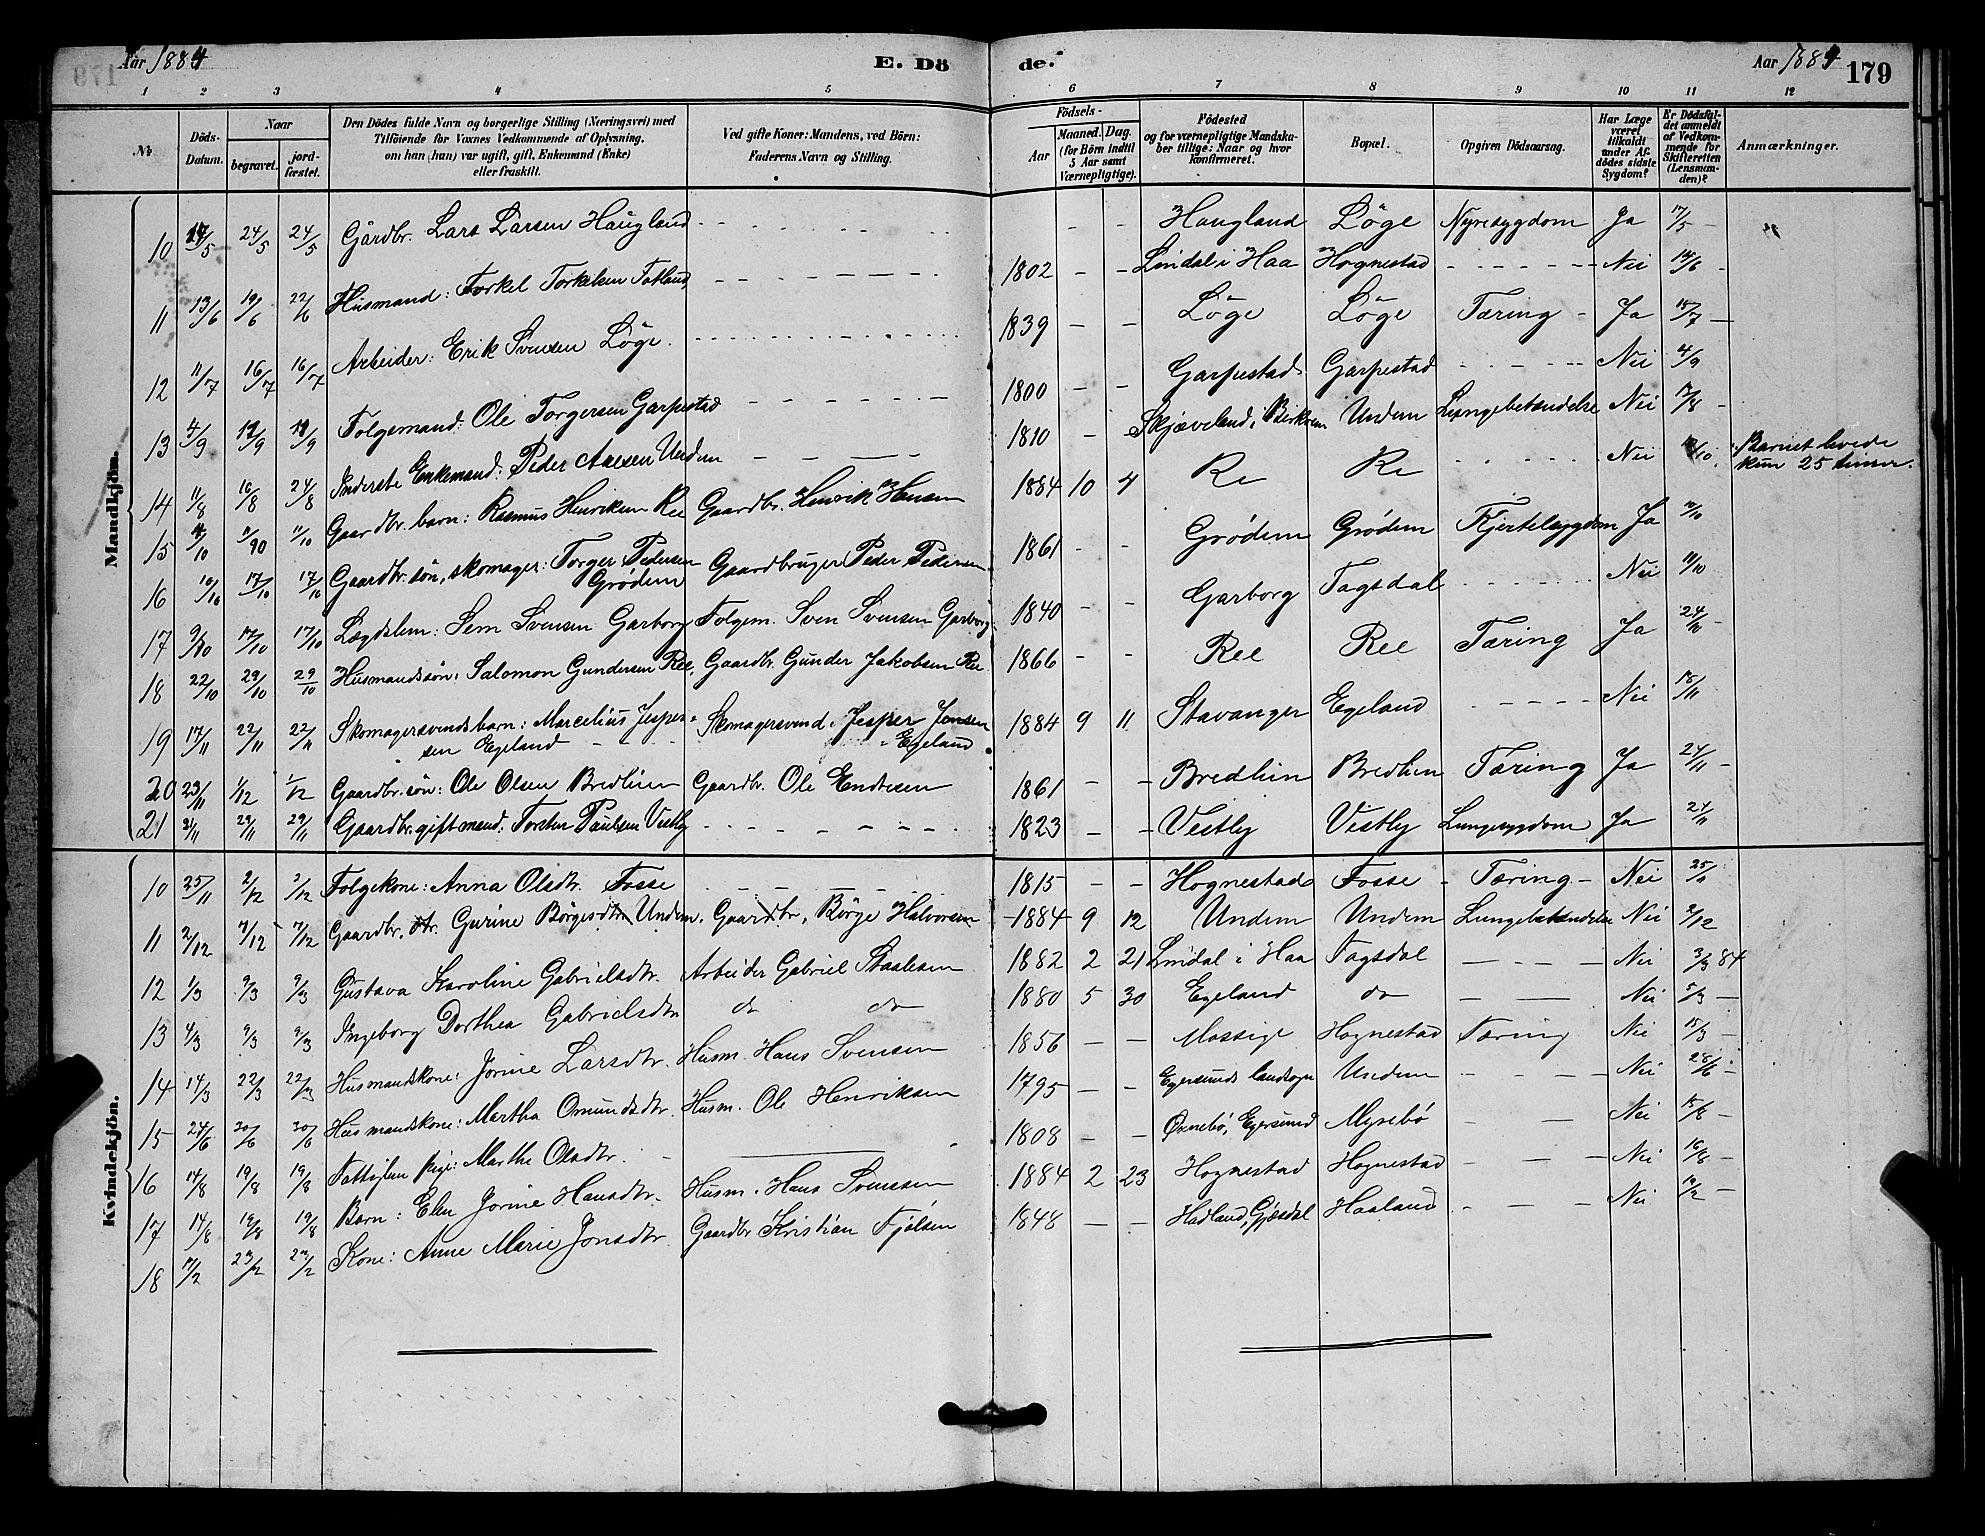 Aar 1884
E. Dö
de.
Aar 1884
179
1 2 3 4 5 6 7 8 9 10 11 12
№
Döds-Datum.
Naar
begravet.
jord-fæstet.
Den Dödes fulde Navn og borgerlige Stilling (Næringsvei) med
Tilföiende for Voxnes Vedkommende af Oplysning,
om han (hun) var ugift, gift, Enkemand (Enke)
eller fraskilt.
Ved gifte Koner: Mandens, ved Börn:
Faderens Navn og Stilling.
Födsels-
Aar
Maaned. Dag.
(for Börn indtil
5 Aar samt
Værnepligtige).
Födested
og for værnepligtige Mandska-
ber tillige: Naar og hvor
konfirmeret.
Bopæl.
Opgiven Dödsaarsag.
Har Læge
været
tilkaldt
under Af-
dödes sidste
Sygdom?
Er Dödsfal-
det anmeldt
af Vedkom-
mende for
Skifteretten
(Lensman-
den)?
Anmærkninger.
Mandkjön.
10 17/5 24/5 24/5 Gårdbr. Lars Larsen Haugland - - - Haugland Löge Nyresygdom Ja 17/5
11 13/6 19/6 22/6 Husmand: Torkel Torkelsen Fotland - - 1802 - - Lindal i Haa Hognestad - - Nei 14/6
12 11/7 16/7 16/7 Arbeider: Erik Svensen Löge. - - 1839 - - Löge Löge Tæring - Ja 15/7
13 4/9 12/9 11/9 Folgemand: Ole Torgersen Garpestad - - 1800 - - Garpestad Garpestad - - Nei 4/9
14 11/8 16/8 24/8 Inderste Enkemand: Peder Aasen Undem - - 1810 - - Skjæveland, Birkrem Undem Lungebetændelse Nei 12/8
15 11/10 11/90 11/10 Gaardbr. barn: Rasmus Henriksen Ree Gaardbr. Henrik Hansen 1884 10 4 Re Re - - Nei /10 Barnet levede
kun 25 timer.
16 10/10 17/10 17/10 Gaardbr. sön, skomager: Torger Pedersen
Grödem Gaardbruger Peder Pedersen 1861 - - Grödem Grödem Kjertelsygdom Ja 11/10
17 9/10 17/10 17/10 Lægdslem: Sem Svensen Garborg Folgem. Sven Svensen Garborg 1840 - - Garborg Tagsdal - - Nei 11/10
18 22/10 29/10 29/10 Husmandssön: Salomon Gundersen Ree, Gaardbr. Gunder Jakobsen Ree 1866 - - Ree Ree Tæring Ja 24/10
19 17/11 22/11 22/11 Skomagersvendsbarn: Marcelius Jesper-
sen Egeland Skomagersvend: Jesper Jensen
Egeland 1884 9 11 Stavanger Egeland - - Nei 18/11
20 23/11 1/12 1/12 Gaardbr. sön: Ole Olsen Bredlien Gaardbr. Ole Endresen 1861 - - Bredlien Bredlien Tæring Ja 24/11
21 21/11 29/11 29/11 Gaardbr. gift mand: Torsten Paulsen Vestly - - 1823 - - Vestly Vestly Lungesygdom Ja 24/11
Kvindekjön.
10 25/11 2/12 2/12 Folgekone: Anna Olsdtr. Fosse - - 1815 - - Hognestad Fosse Tæring Nei 25/11
11 2/12 7/12 7/12 Gaardbr. dtr. Gurine Börgesdtr. Undem, Gaardbr. Börge Halvorsen 1884 9 12 Undem Undem Lungebetændelse Nei 2/12
12 1/3 9/3 9/3 Gustava Karoline Gabrielsdtr. Arbeider Gabriel Staalesen 1882 2 21 Lindal i Haa Tagsdal - - Nei 3/3 84
13 4/3 9/3 9/3 Ingeborg Dorthea Gabrielsdtr do do 1880 5 30 Egeland do - - Nei 5/3
14 14/3 22/3 22/3 Husmandskone: Jorine Larsdtr. Husm. Hans Svensen 1856 - - Mossige Hognestad Tæring Nei 15/3
15 24/6 30/6 30/6 Husmandskone: Martha Omundsdtr. Husm. Ole Henriksen 1795 - - Egersunds landsogn Undem - - Nei 28/6
16 14/8 19/8 19/8 Fattiglem pige: Marthe Olsdtr. - 1808 - - Örnebö, Egersund Myrebö - - Nei 15/8
17 14/8 19/8 19/8 Barn: Elen Jorine Hansdtr. Husm. Hans Svensen 1884 2 23 Hognestad Hognestad - - Nei 16/8
18 17/2 23/2 23/2 Kone: Anne Marie Jonsdtr. Gaardbr Kristian Fjölsen 1848 - - Hadland, Gjesdal Haaland - - Nei 19/2